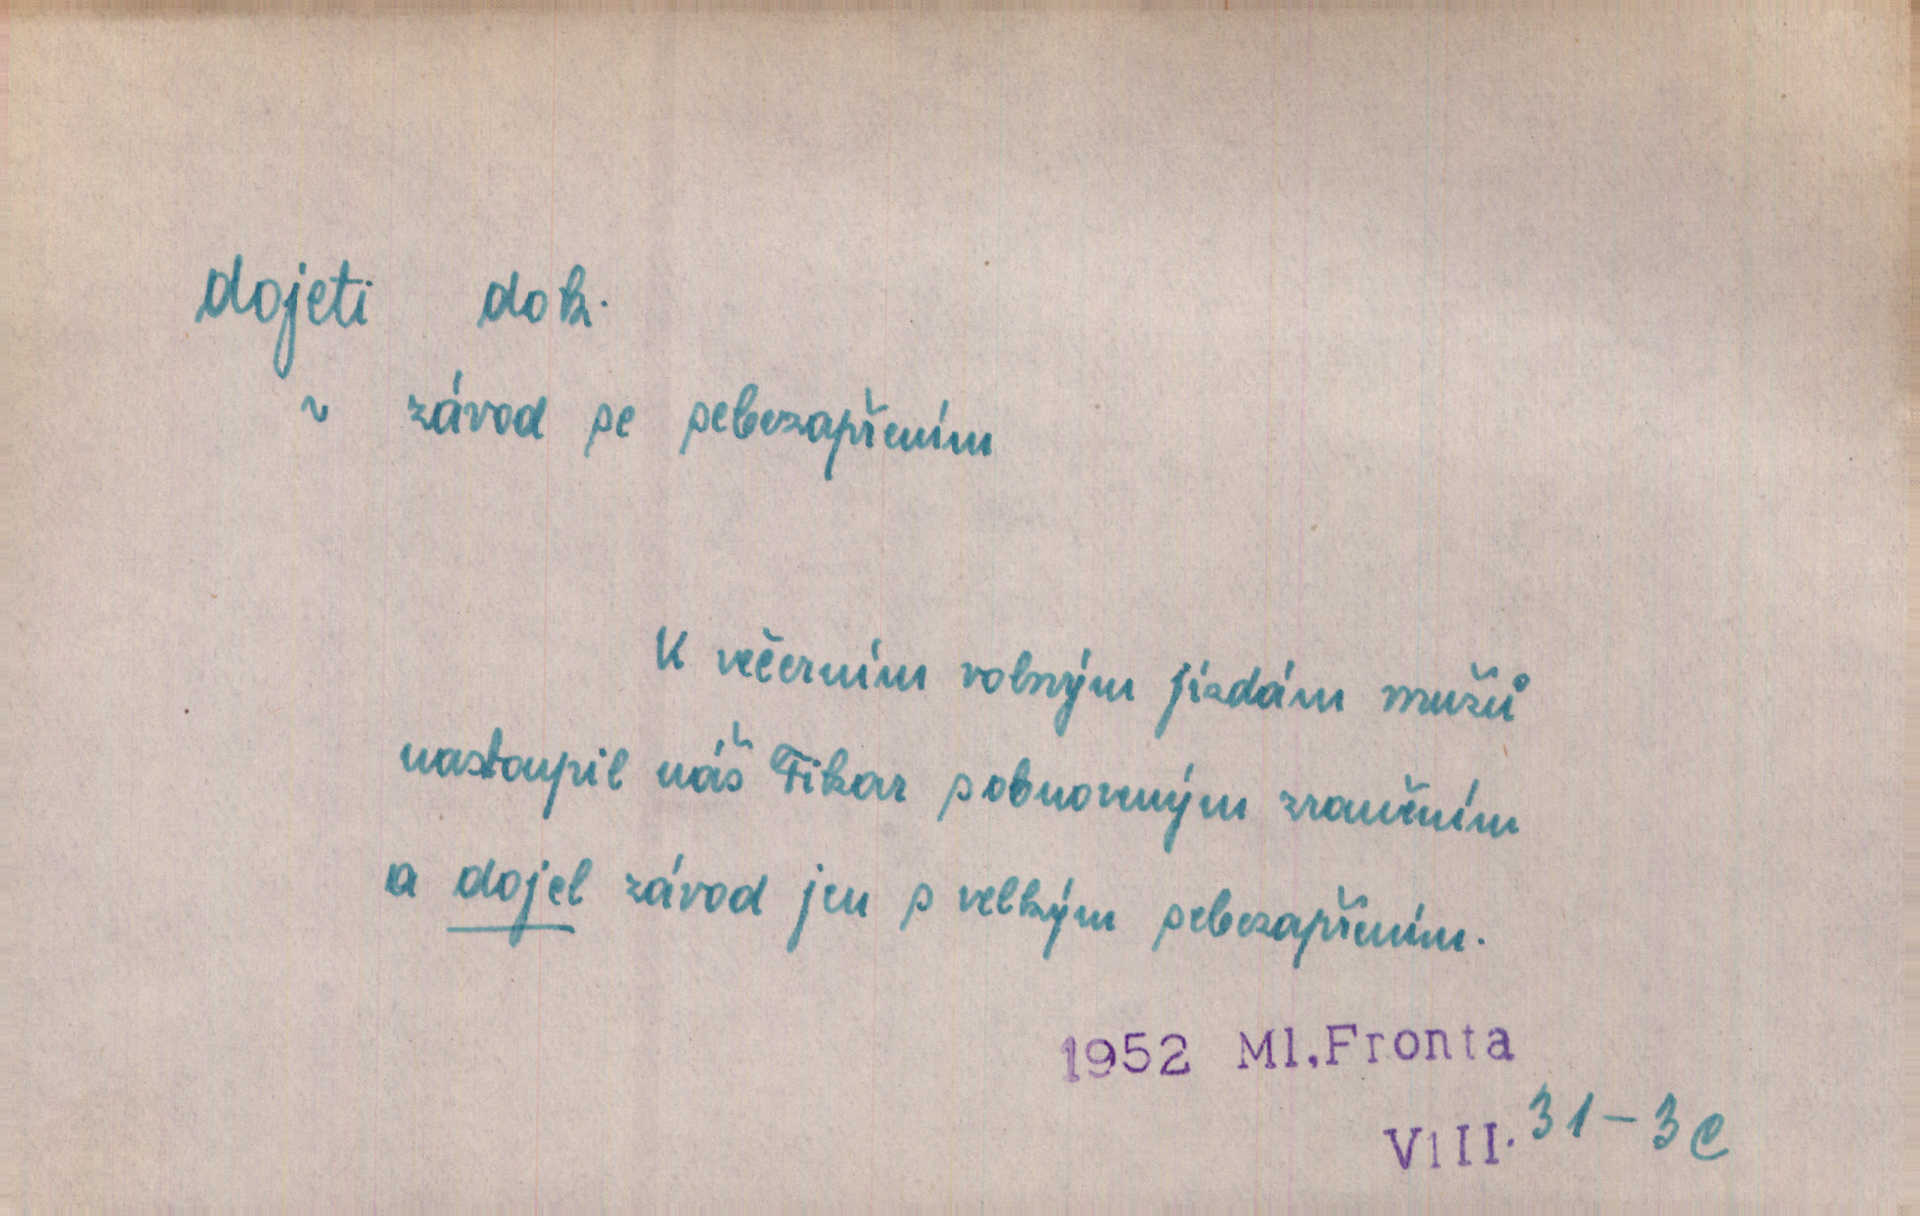 dojeti dok.
~ závod se sebezapřením
K večerním volným jízdám mužů
nastoupil náš Fikar s obnoveným zraněním
a dojel závod jen s velkým sebezapřením.
1952 Ml.Fronta
VIII. 31-3c